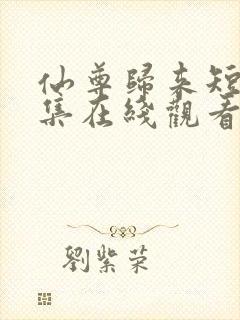 仙尊歸來短
集在綫觀看
劉紫荣